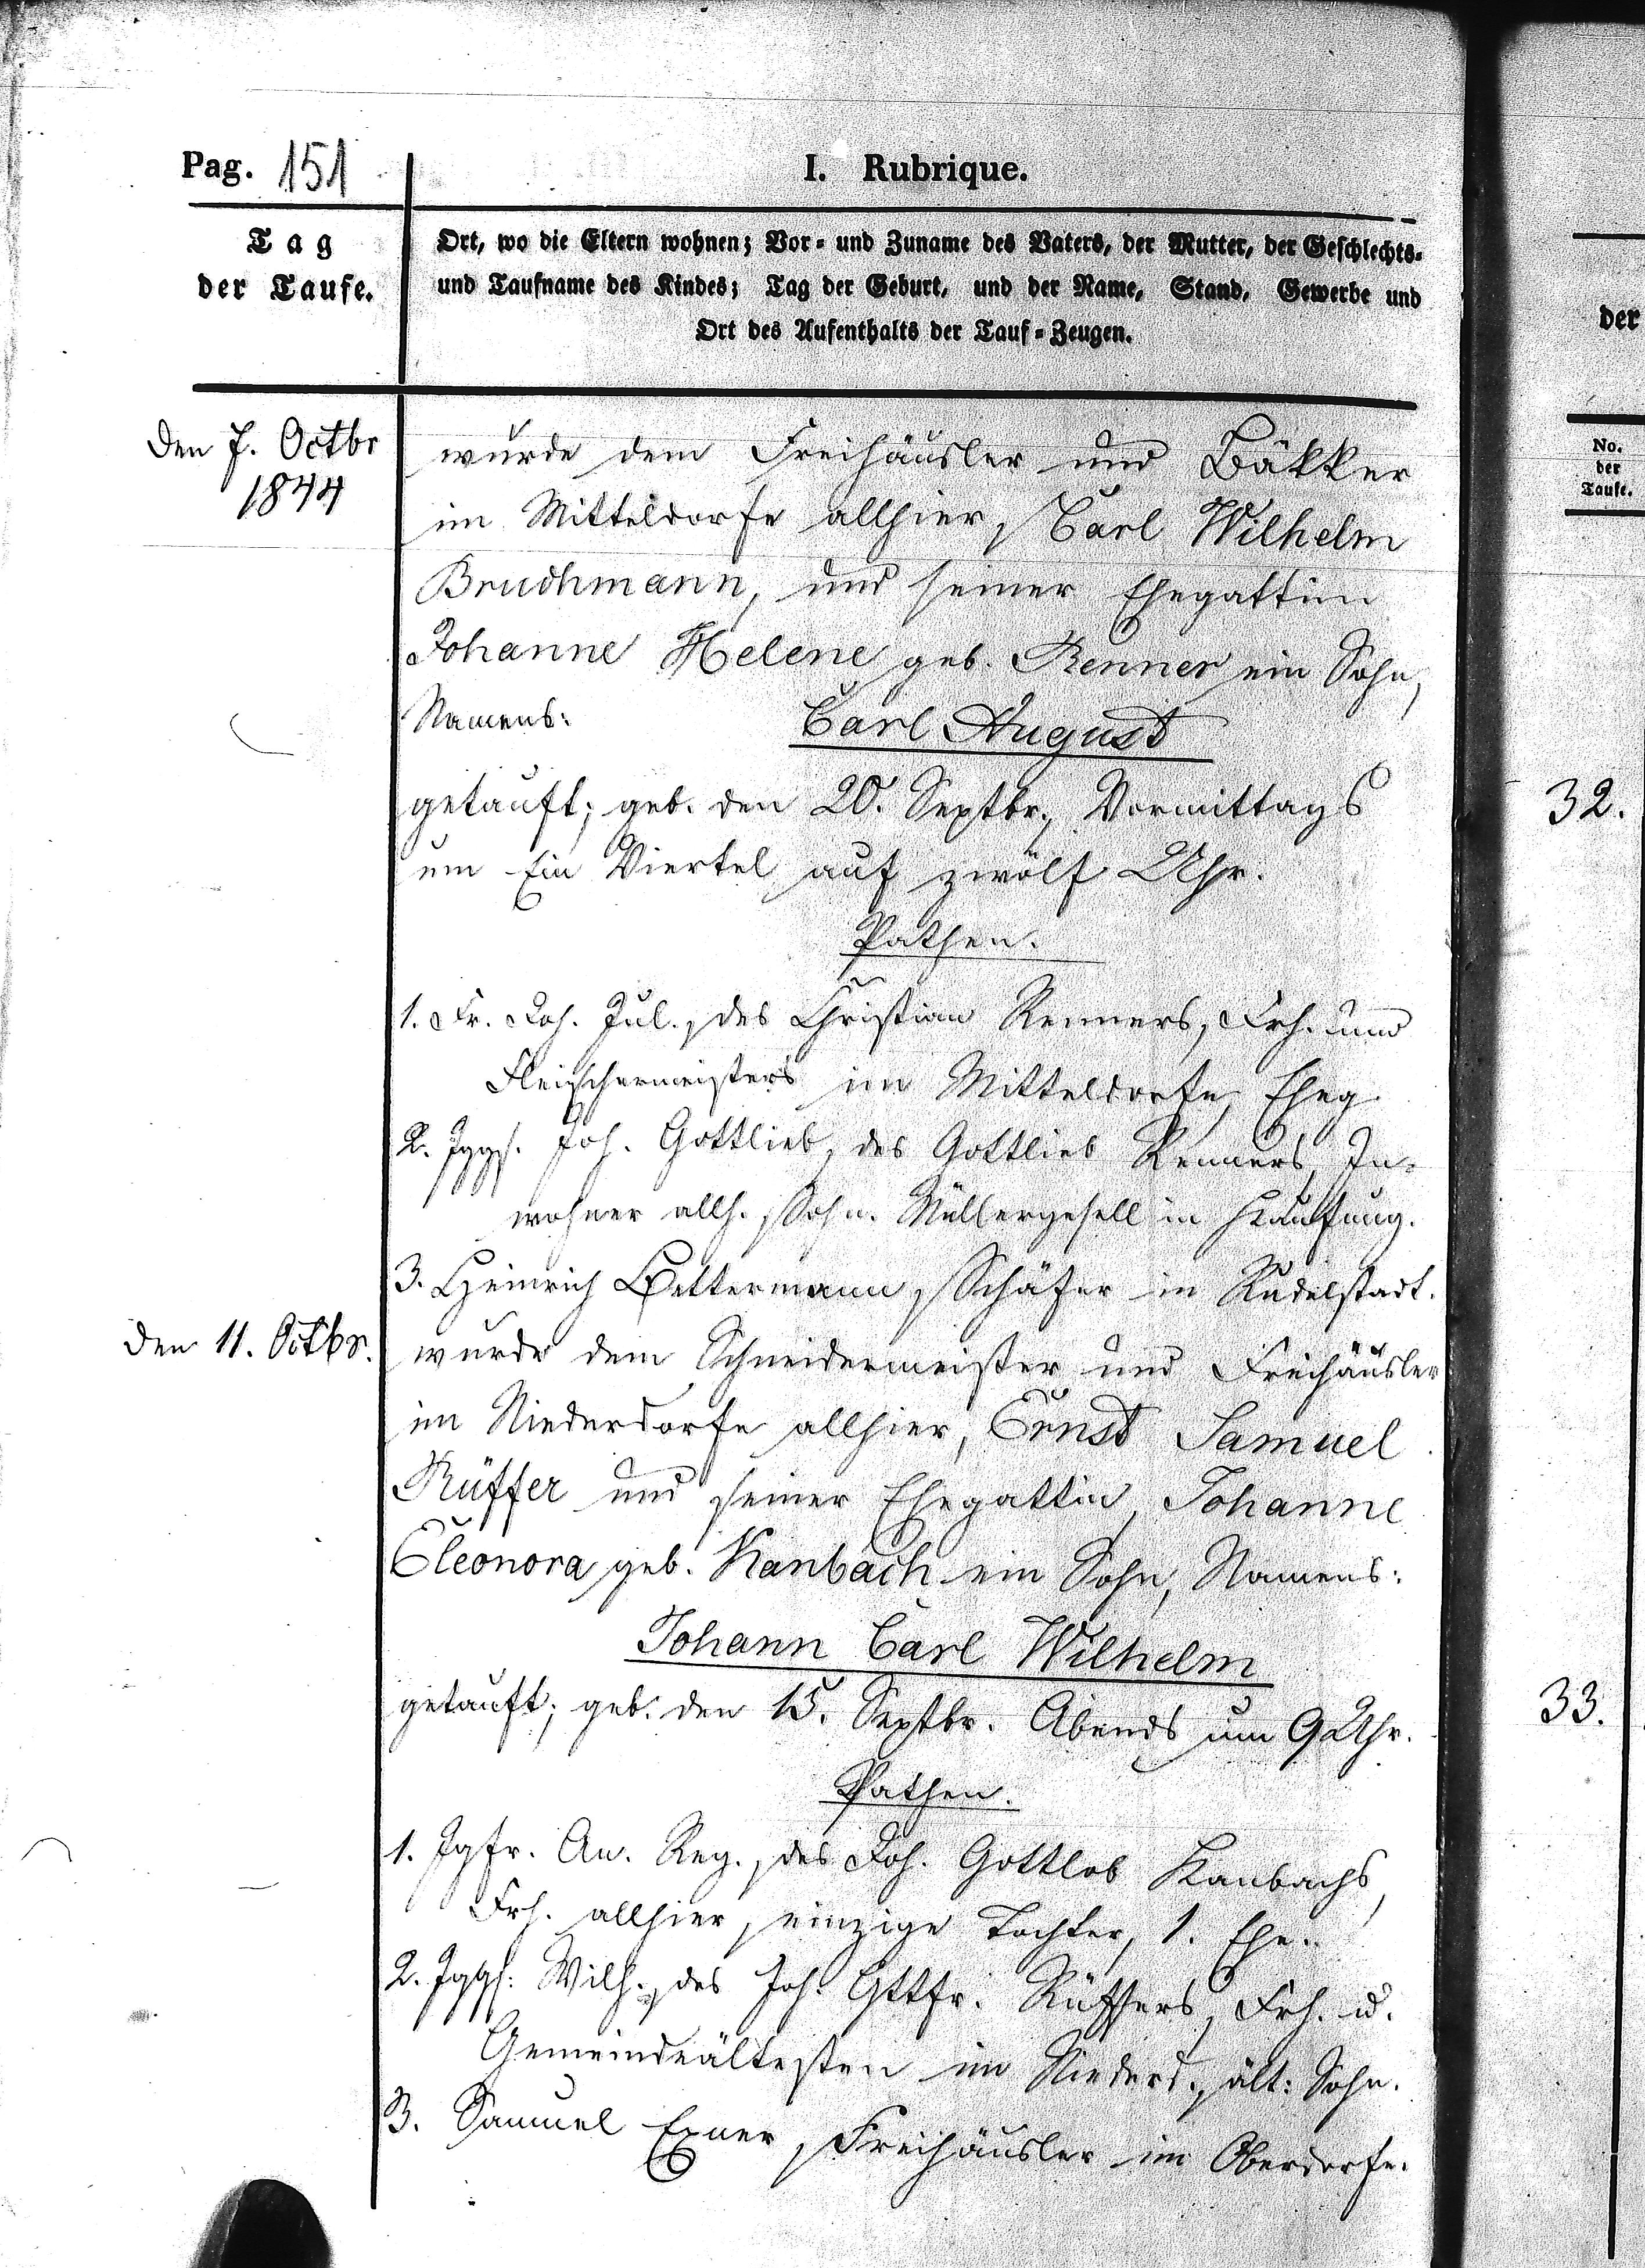 Pag. 151
I. Rubrique.
Tag
der Taufe.
Ort, wo die Eltern wohnen; Vor- und Zuname des Vaters, der Mutter, der Geschlechts-
und Taufname des Kindes; Tag der Geburt, und der Name, Stand, Gewerbe und
Ort des Aufenthalts der Tauf-Zeugen.
der
No.
der
Taufe.
den 7. Octbr
1844
wurde dem Freihäusler und Bäkker
im Mitteldorfe allhier, Carl Wilhelm
Bruchmann, und seiner Ehegattin
Johanne Helene geb. Renner ein Sohn,
Namens: Carl August
getauft; geb. den 20. Septbr., Vormittags
um Ein Viertel auf zwölf Uhr.
32.
Pathen.
1. Fr. Joh. Jul., des Christian Renners, Frh. und
Fleischermeisters im Mitteldorfe, Eheg.
2. Jggs. Joh. Gottlieb, des Gottlieb Renners, In-
wohner allh. Sohn. Müllergesell in Kauffung.
3. Heinrich Bettermann, Schäfer in Rudelstadt.
den 11. Octbr.
wurde dem Schneidermeister und Freihäusler
im Niederdorfe allhier, Ernst Samuel
Rüffer und seiner Ehegattin, Johanne
Eleonora geb. Kanbach ein Sohn, Namens:
Johann Carl Wilhelm
getauft; geb. den 15. Septbr. Abends um 9 Uhr.
33.
Pathen.
1. Jgfr. An. Reg., des Joh. Gottlob Kanbachs,
Frh. allhier, einzige Tochter, 1. Ehe.
2. Jggs. Wilh., des Joh. Gttfr. Rüffers, Frh. u.
Gemeindeältesten im Niederd., ält. Sohn.
3. Samuel Exner, Freihäusler im Oberdorfe.